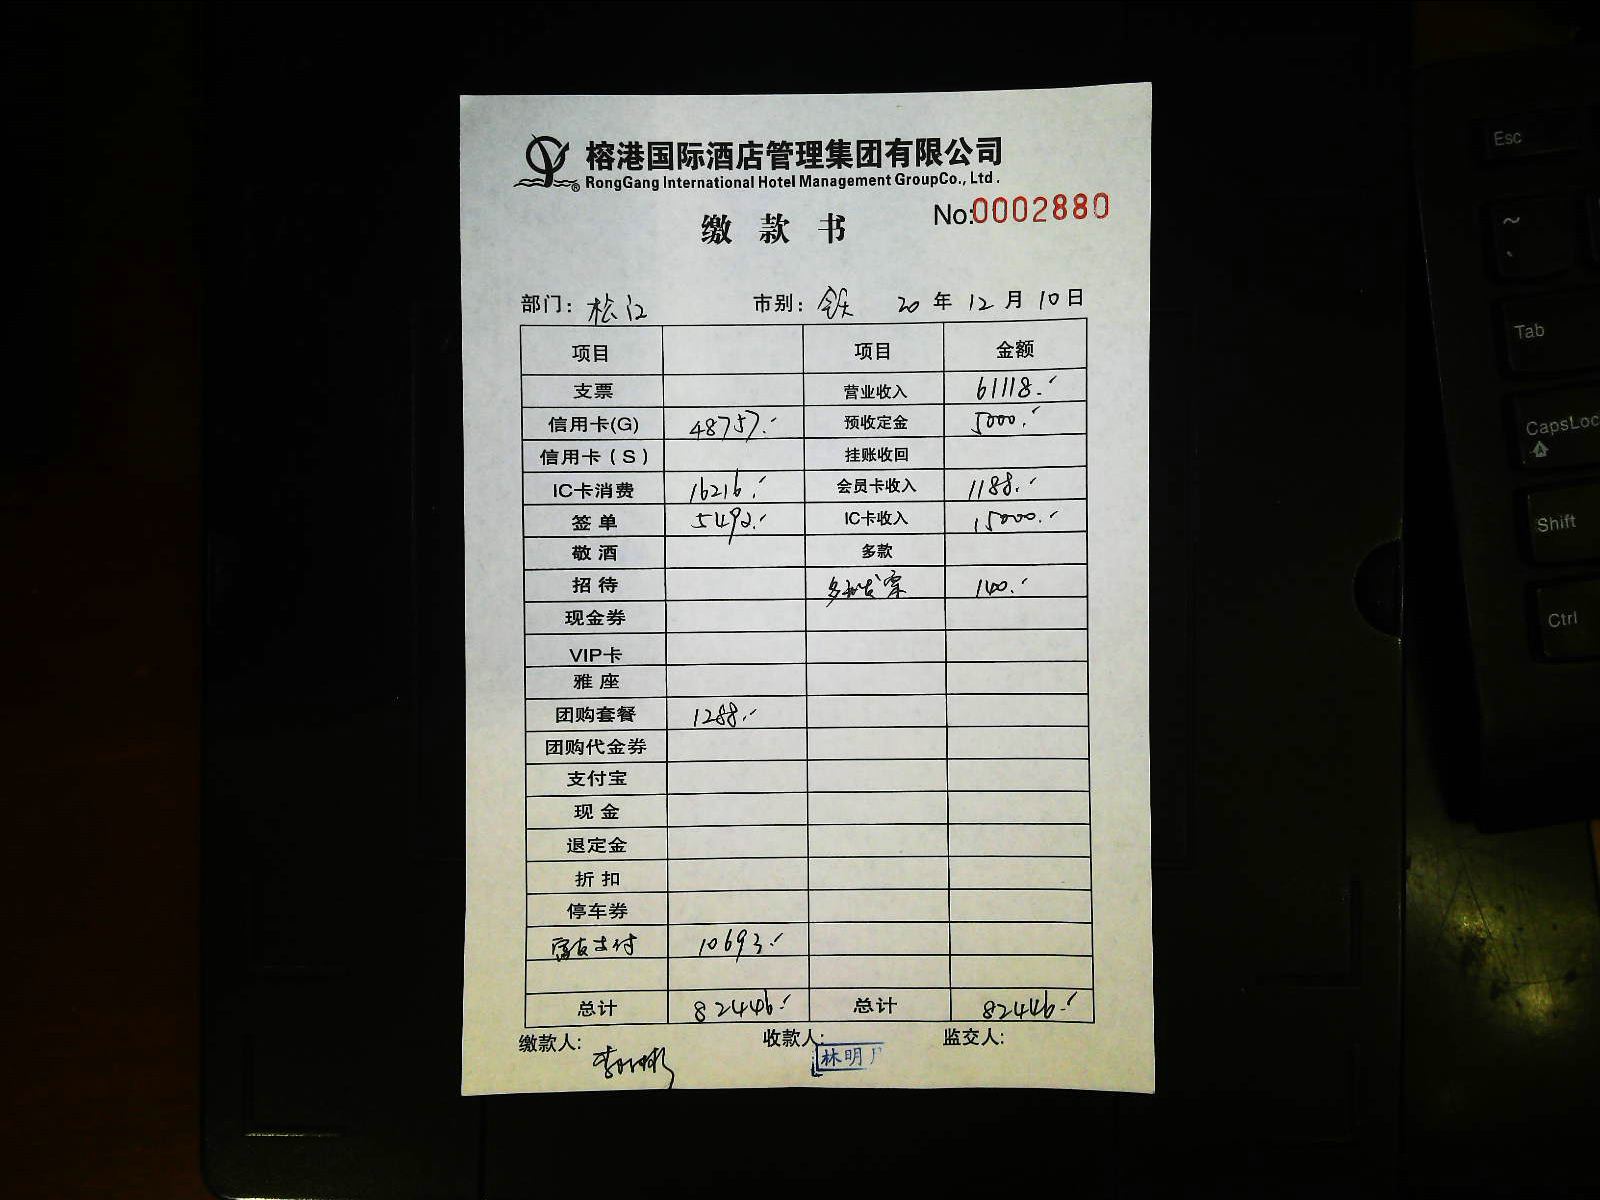 榕港国际酒店管理集团有限公司
RongGang International Hotel Management GroupCo., Ltd.
缴 款 书
No:0002880
部门: 松江 市别: 全天 20 年 12 月 10 日
项目 项目 金额
支票 营业收入 61118.-
信用卡(G) 48757.- 预收定金 5000.-
信用卡(S) 挂账收回
IC卡消费 16216.- 会员卡收入 1188.-
签 单 5492.- IC卡收入 15000.-
敬 酒 多款
招 待 发票 140.-
现金券
VIP卡
雅 座
团购套餐 1288.-
团购代金券
支付宝
现 金
退定金
折 扣
停车券
富友支付 10693.-
总计 82446.- 总计 82446.-
缴款人: 收款人: 林明 监交人:
Esc
~
Tab
CapsLoc
Shift
Ctrl